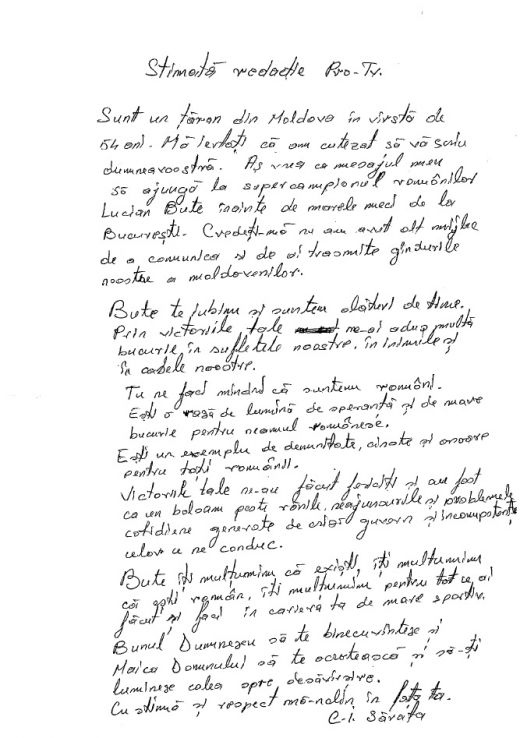 Stimată redacție Pro-Tv.
Sunt un țăran din Moldova în vîrstă de
54 ani. Mă iertați că am cutezat să vă scriu
dumneavoastră. Aș vrea ca mesajul meu
să ajungă la supercampionul românilor
Lucian Bute înainte de marele meci de la
București. Credeți-mă nu am avut alt mijloc
de a comunica și de ai trasmite gîndurile
noastre a moldovenilor.
Bute te iubim și suntem alături de tine.
Prin victoriile tale ne-ai adus multă
bucurie, în sufletele noastre, în inimile și
în casele noastre.
Tu ne faci mîndri că suntem români.
Ești o rază de lumină de speranță și de mare
bucurie pentru neamul românesc.
Ești un exemplu de demnitate, cinste și onoare
pentru toți românii.
Victoriile tale ne-au făcut fericiți și au fost
ca un balsam peste rănile, neajunsurile și problemele
cotidiene generate de guvern și incompetența
celor ce ne conduc.
Bute îți mulțumim că exiști, îți mulțumim
că ești român, îți mulțumim pentru tot ce ai
făcut și faci în cariera ta de mare sportiv.
Bunul Dumnezeu să te binecuvînteze și
Maica Domnului să te ocrotească și să-ți
lumineze calea spre desăvîrșire.
Cu stimă și respect mă-nclin în fața ta.
C-I. Sărata